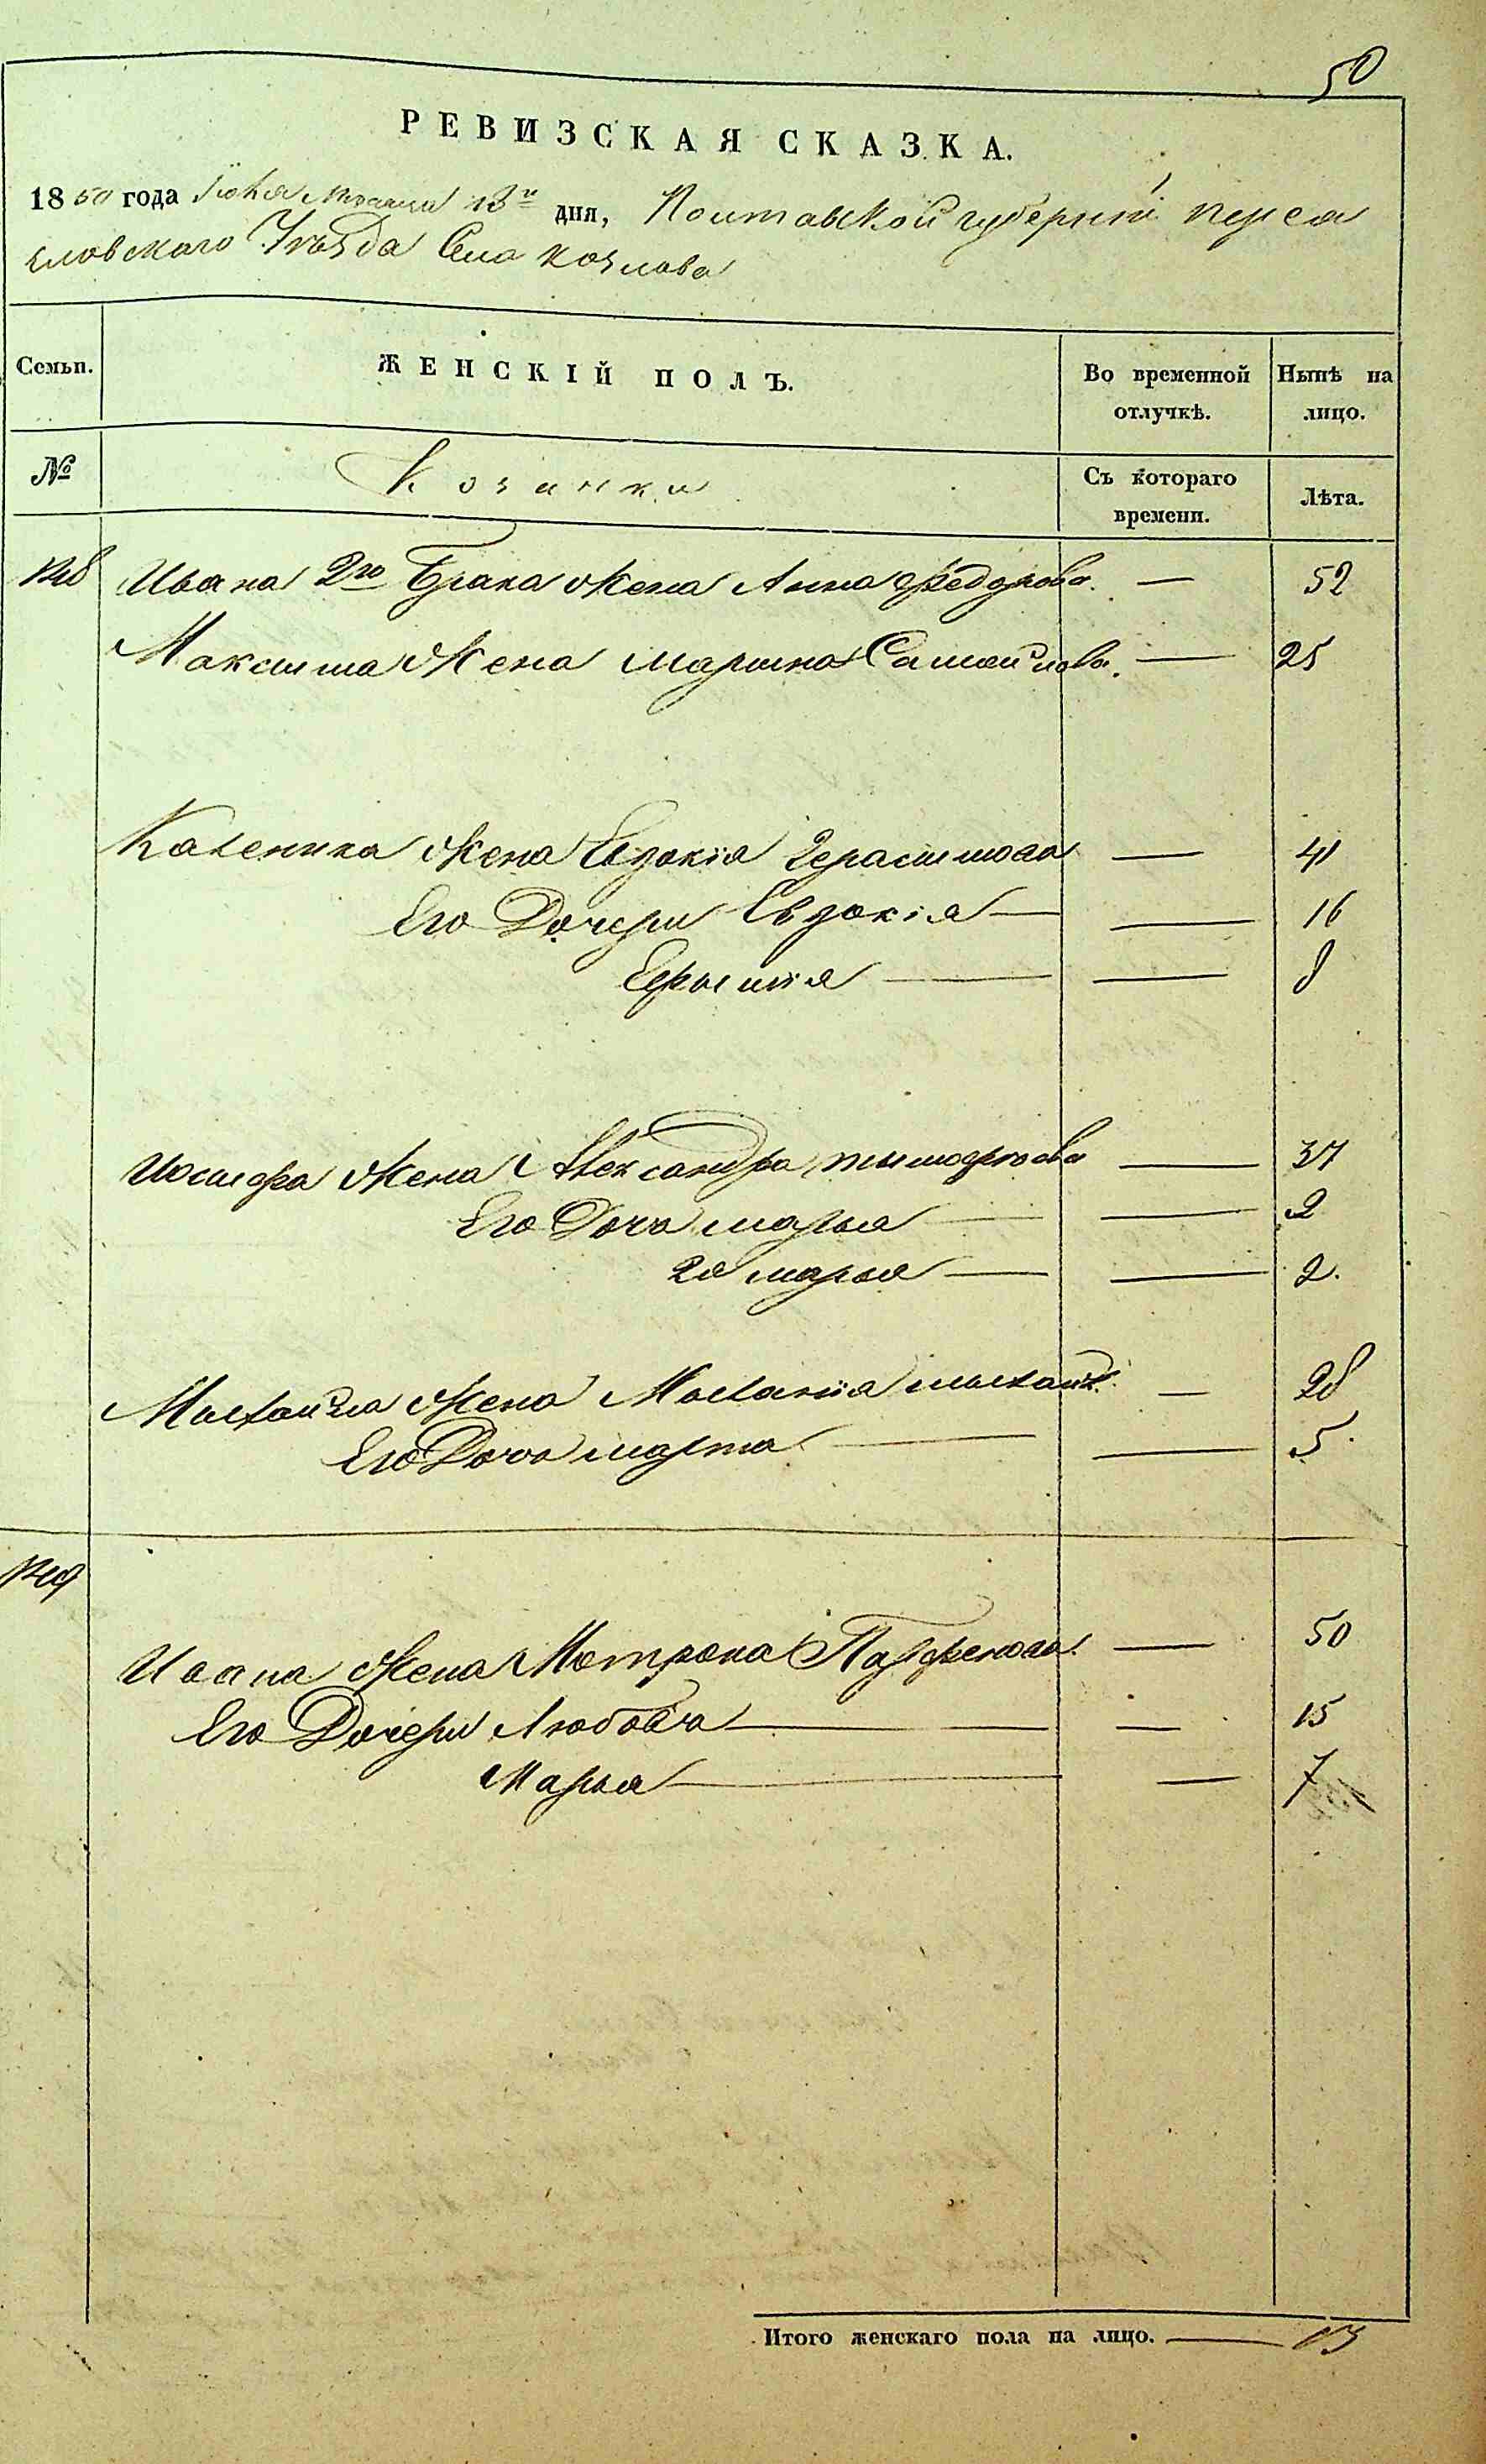 50
РЕВИЗСКАЯ СКАЗКА.
1850 года Іюня Месяца 13 дня, Полтавской губерніи перея
словского Уѣзда Села козлова
Семьи. ЖЕНСКІЙ ПОЛЪ. Во временной отлучкѣ. Нынѣ на лицо.
№ Козачки Съ котораго времени. Лѣта.
Ивана 2го Брака Жена Анна Федорова. — 52
Максима Жена марина Самойлова. — 25
Каленика Жена Евдокія Герасимова — 41
Его Дочери Евдокія — — 16
Ефимія — — 8
Иосифа Жена Александра тимофеова — 37
Его Дочь марья — — 2
2я марья — — 2.
Михайла Жена Маланія михайл. — 28
Его Дочь марта — — 5.
Ивана Жена Мотрона Парфенова. — 50
Его Дочери Любовь — — 15
Марья — — 7
Итого женскаго пола на лицо. — 13